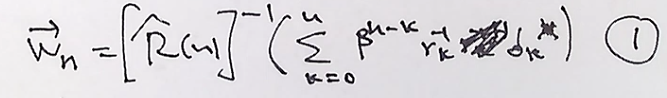 \vec{W}_n = [\hat{R}(n)]^{-1} ( \sum_{k=0}^{n} β^{n-k} r_k^{-1} d_k^* ) ①